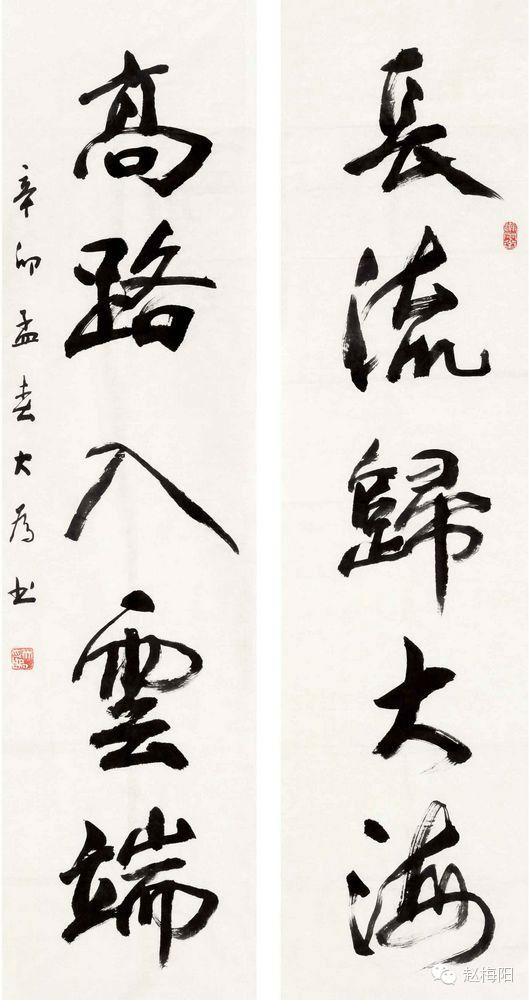 長流歸大海
高路入雲端
辛卯孟春大為书
赵梅阳